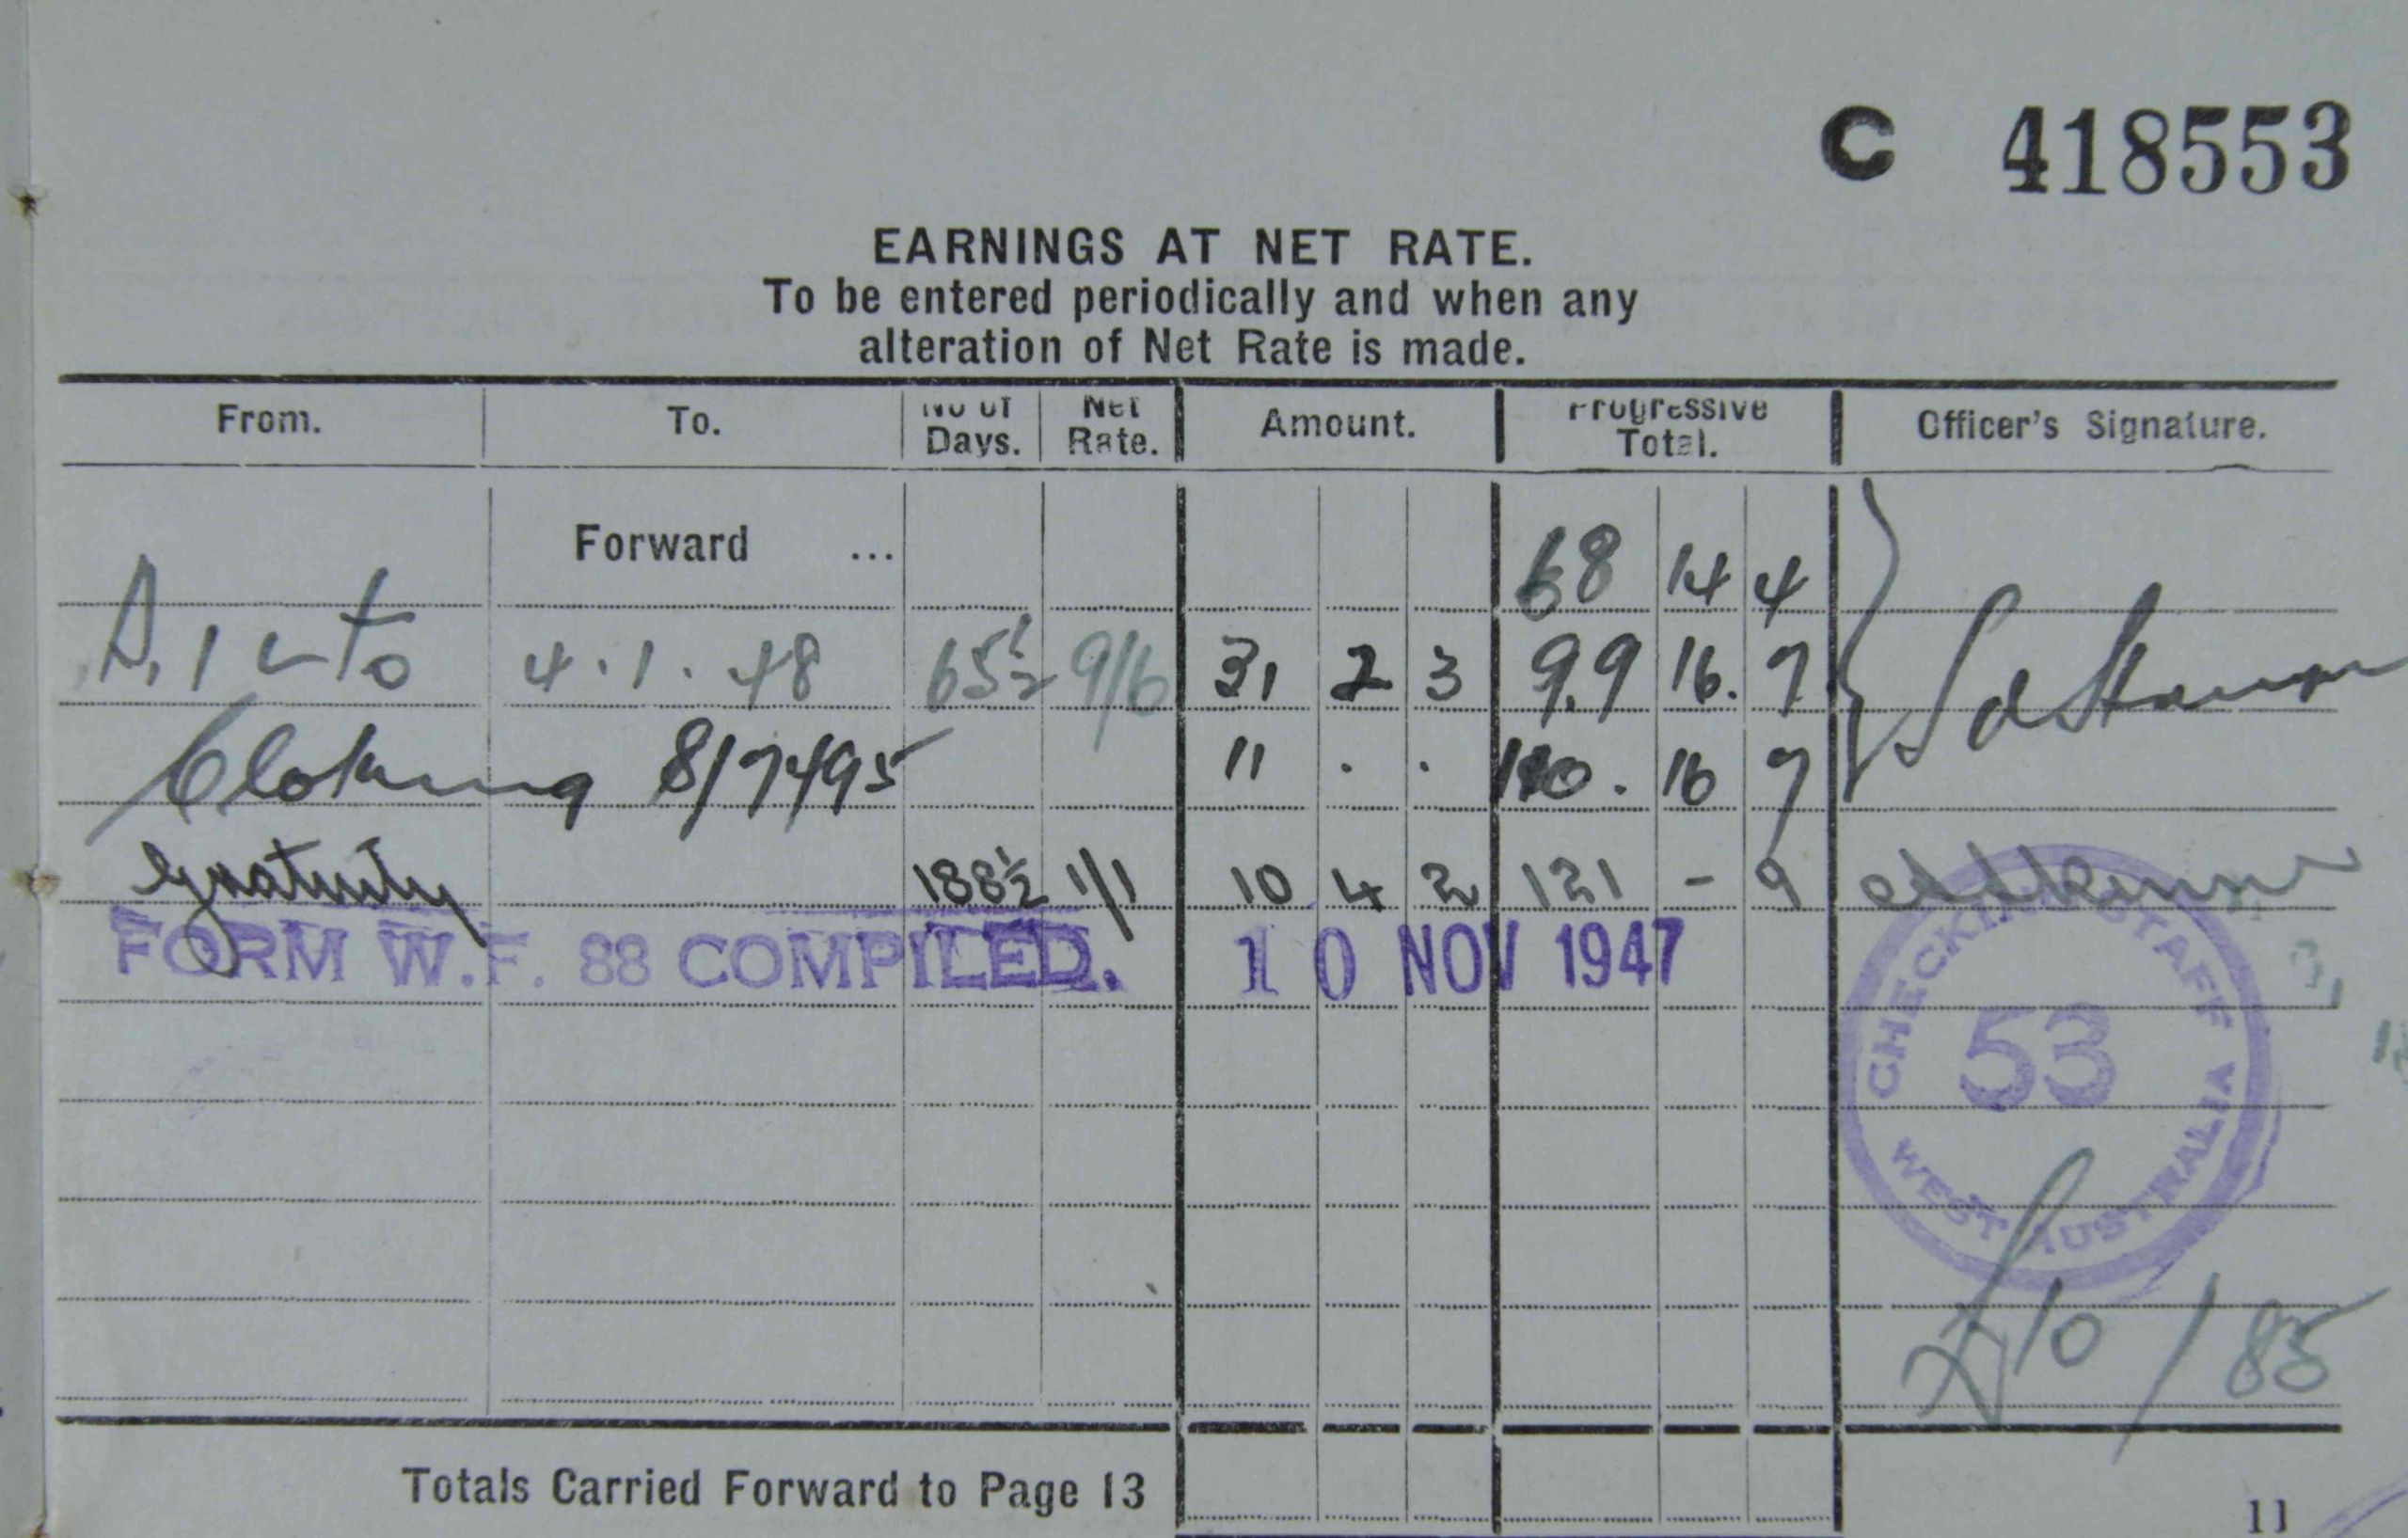 C 418553
EARNINGS AT NET RATE.
To be entered periodically and when any
alteration of Net Rate is made.
From. To. No of Days. Net Rate. Amount. Progressive Total. Officer's Signature.
Forward ... 68 14 4
4.1.48 65½ 9/6 31 2 3 99 16. 7
Clothing 8/7495 11 . . 110. 16 7
Gratuity 188½ 1/1 10 4 2 121 - 9
FORM W.F. 88 COMPILED. 10 NOV 1947
CHECKING STAFF
53
WEST AUSTRALIA
/85
Totals Carried Forward to Page 13
11